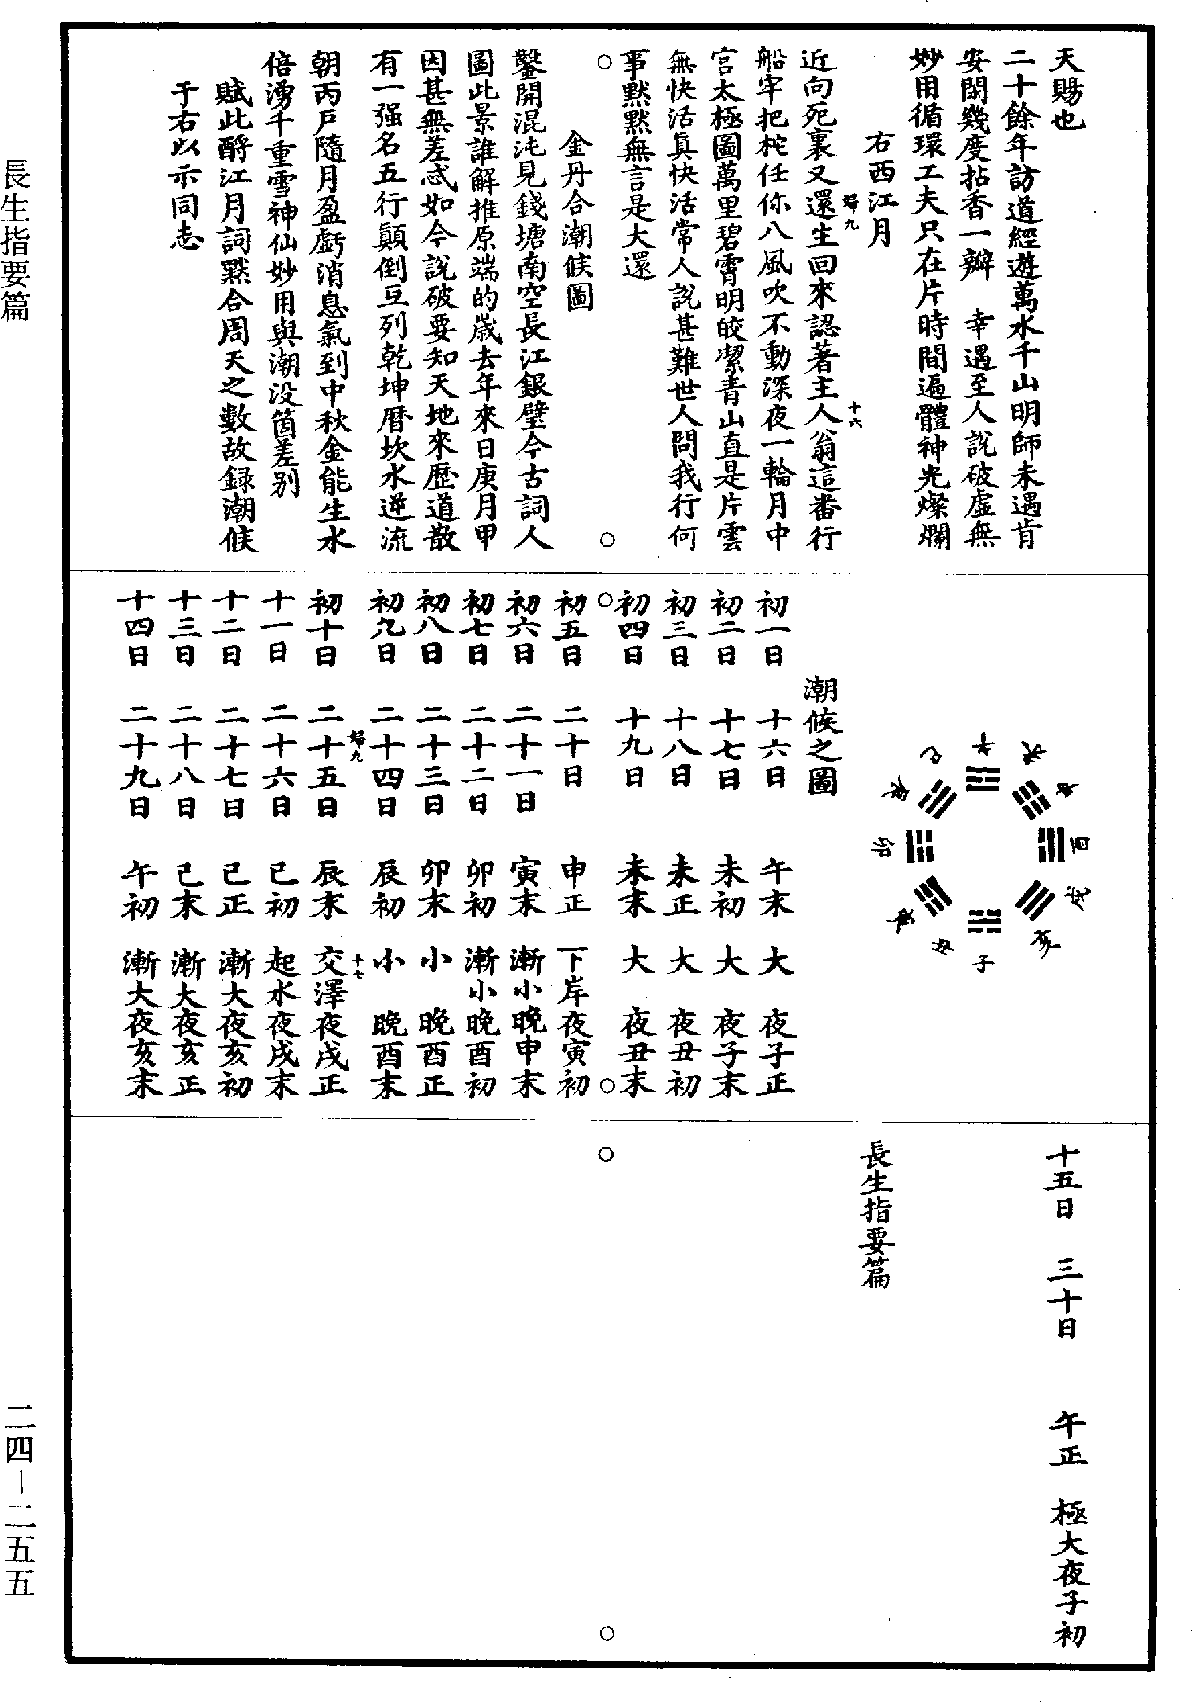 天賜也
二十餘年訪道經遊萬水千山明師未遇肯
安閑幾度拈香一瓣　幸遇至人說破虛無
妙用循環工夫只在片時間遍體神光燦爛
右西江月
婦九
近向死裏又還生回來認著主人翁這番行
十六
船牢把柁任你八風吹不動深夜一輪月中
宮太極圖萬里碧霄明皎潔青山直是片雲
無快活真快活常人說甚難世人問我行何
事默默無言是大還
金丹合潮候圖
鑿開混沌見錢塘南空長江銀壁今古詞人
圖此景誰解推原端的歲去年來日庚月甲
因甚無差忒如今說破要知天地來歷道散
有一强名五行顛倒互列乾坤曆坎水逆流
朝丙戶隨月盈虧消息氣到中秋金能生水
倍湧千重雪神仙妙用與潮没箇差別
賦此酹江月詞默合周天之數故録潮候
于右以示同志
午
未
申
酉
戌
亥
子
丑
寅
卯
辰
巳
潮候之圖
初一日　十六日　午末　大　夜子正
初二日　十七日　未初　大　夜子末
初三日　十八日　未正　大　夜丑初
初四日　十九日　未末　大　夜丑末
初五日　二十日　申正　下岸夜寅初
初六日　二十一日　寅末　漸小晚申末
初七日　二十二日　卯初　漸小晚酉初
初八日　二十三日　卯末　小　晚酉正
初九日　二十四日　辰初　小　晚酉末
婦九
十七
初十日　二十五日　辰末　交澤夜戌正
十一日　二十六日　巳初　起水夜戌末
十二日　二十七日　巳正　漸大夜亥初
十三日　二十八日　巳末　漸大夜亥正
十四日　二十九日　午初　漸大夜亥末
十五日　三十日　午正　極大夜子初
長生指要篇
長生指要篇
二四—二五五